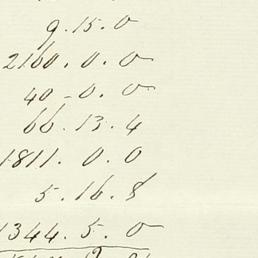 9.15.0
2160.0.0
40-0.0
66.13.4
1811.0.0
5.16.8
1344.5.0